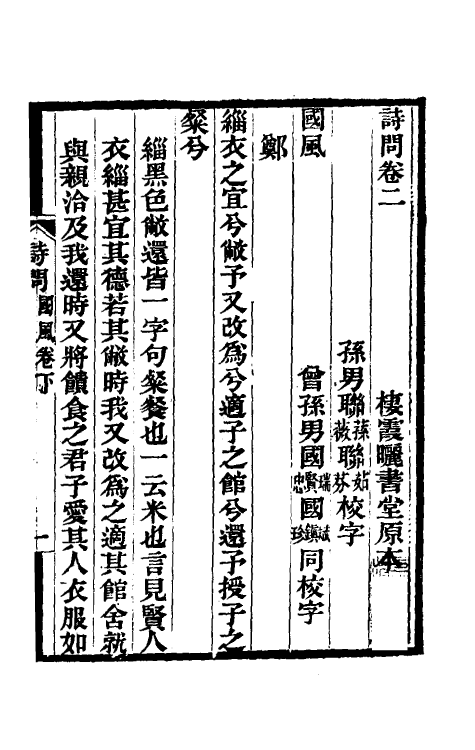 詩問卷二
棲霞曬書堂原本
孫男聯蓀薇聯茹芬校字
國風
曾孫男國瑞賢忠國斌鎮珍同校字
鄭
緇衣之宜兮敝予又改為兮適子之館兮還予授子之
粲兮
緇黑色敝還皆一字句粲餐也一云米也言見賢人
衣緇甚宜其德若其敝時我又改為之適其館舍就
與親洽及我還時又將饋食之君子愛其人衣服如
詩問 國風卷下 一